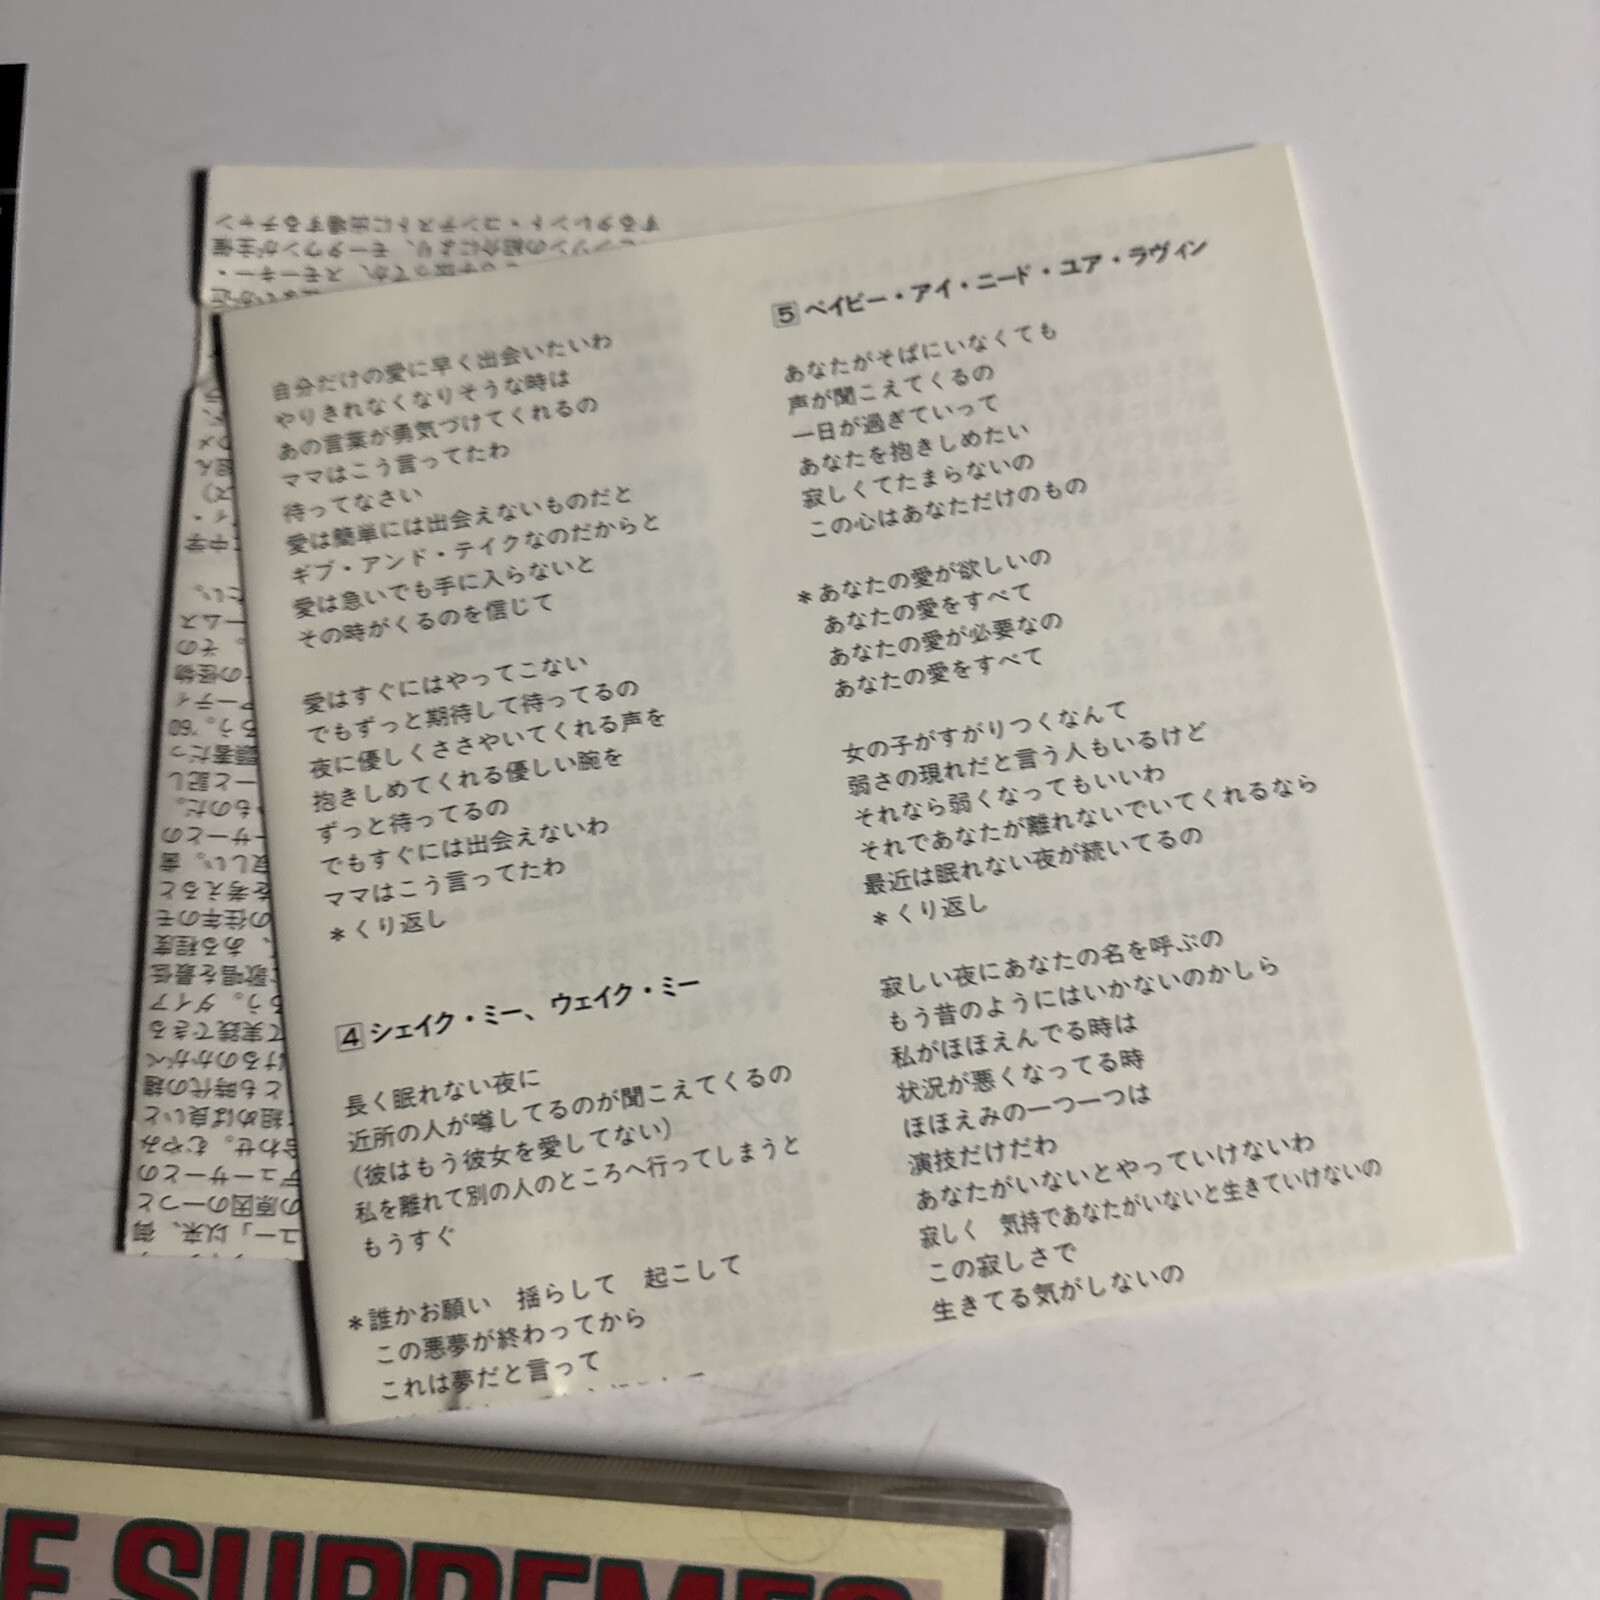 自分だけの愛に早く出会いたいわ
やりきれなくなりそうな時は
あの言葉が勇気づけてくれるの
ママはこう言ってたわ
待ってなさい
愛は簡単には出会えないものだと
ギブ・アンド・テイクなのだからと
愛は急いでも手に入らないと
その時がくるのを信じて
愛はすぐにはやってこない
でもずっと期待して待ってるの
夜に優しくささやいてくれる声を
抱きしめてくれる優しい腕を
ずっと待ってるの
でもすぐには出会えないわ
ママはこう言ってたわ
*くり返し
4 シェイク・ミー、ウェイク・ミー
長く眠れない夜に
近所の人が噂してるのが聞こえてくるの
(彼はもう彼女を愛してない)
私を離れて別の人のところへ行ってしまうと
もうすぐ
*誰かお願い 揺らして 起こして
この悪夢が終わってから
これは夢だと言って
5 ベイビー・アイ・ニード・ユア・ラヴィン
あなたがそばにいなくても
声が聞こえてくるの
一日が過ぎていって
あなたを抱きしめたい
寂しくてたまらないの
この心はあなただけのもの
*あなたの愛が欲しいの
あなたの愛をすべて
あなたの愛が必要なの
あなたの愛をすべて
女の子がすがりつくなんて
弱さの現れだと言う人もいるけど
それなら弱くなってもいいわ
それであなたが離れないでいてくれるなら
最近は眠れない夜が続いてるの
*くり返し
寂しい夜にあなたの名を呼ぶの
もう昔のようにはいかないのかしら
私がほほえんでる時は
状況が悪くなってる時
ほほえみの一つ一つは
演技だけだわ
あなたがいないとやっていけないわ
寂しく 気持であなたがいないと生きていけないの
この寂しさで
生きてる気がしないの
するタレント・コンテストに出場するチャン
の紹介により、モータウンが主催
スモーキー・
ユー」以来、御
の原因の一つと
デューサーとの
合わせ。むやみ
組めば良いと
とも時代の趨
けるのかがべ
て実践できる
ろう。ダイア
歌唱を最低
、ある程度
の往年のモ
を考えると
寂しい。歯
ーサーとの
ものだ。
ーと記し
顕著だっ
ろう。'60
アーティ
の怪物
。その
ームス
たい。
SUPREMES